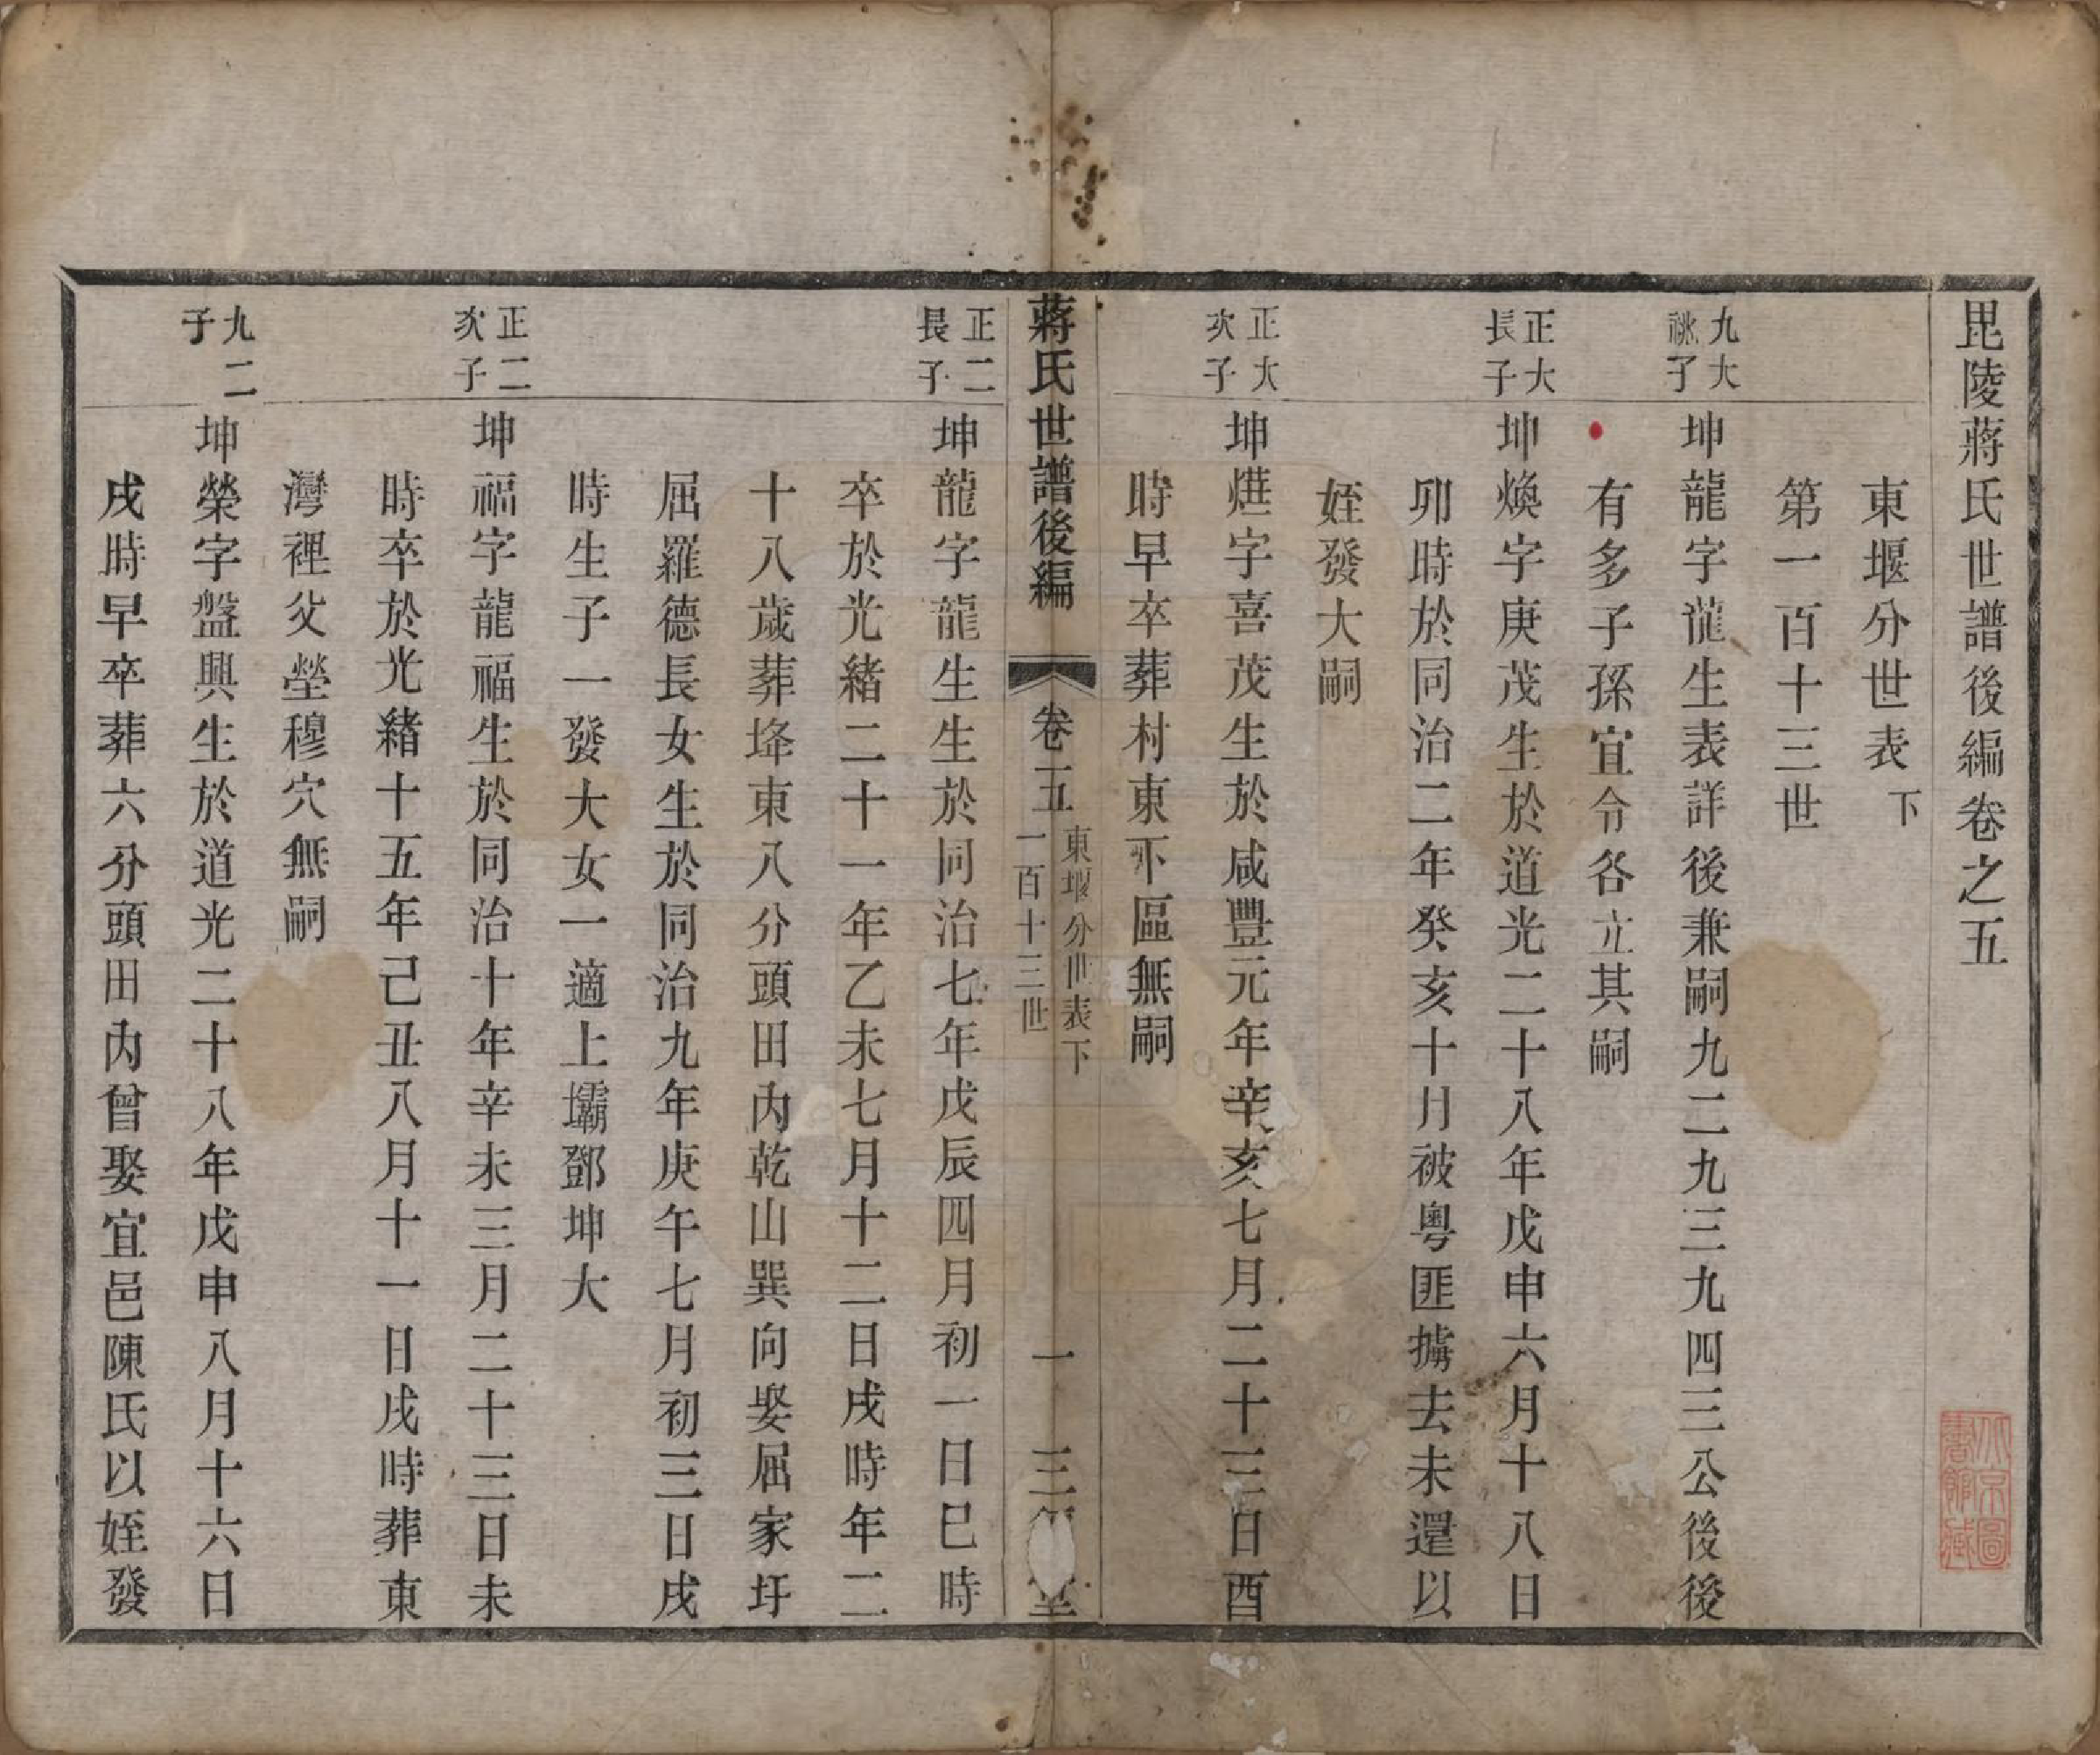 毘陵蔣氏世譜後編卷之五
東堰分世表下
第一百十三世
九大
祧子
坤龍字龍生表詳後兼嗣九二九三九四三公後後
有多子孫宜令各立其嗣
正大
長子
坤煥字庚茂生於道光二十八年戊申六月十八日
卯時於同治二年癸亥十月被粵匪擄去未還以
姪發大嗣
正大
次子
坤㷸字喜茂生於咸豐元年辛亥七月二十三日酉
時早卒葬村東下區無嗣
蔣氏世譜後編
卷五
東堰分世表下
一百十三世
一
三 堂
正二
長子
坤龍字龍生生於同治七年戊辰四月初一日巳時
卒於光緒二十一年乙未七月十二日戌時年二
十八歲葬埄東八分頭田內乾山巽向娶屈家圩
屈羅德長女生於同治九年庚午七月初三日戌
時生子一發大女一適上壩鄧坤大
正二
次子
坤福字龍福生於同治十年辛未三月二十三日未
時卒於光緒十五年己丑八月十一日戌時葬東
灣裡父塋穆穴無嗣
九二
子
坤榮字盤興生於道光二十八年戊申八月十六日
戌時早卒葬六分頭田內曾娶宜邑陳氏以姪發
北京圖
書館藏